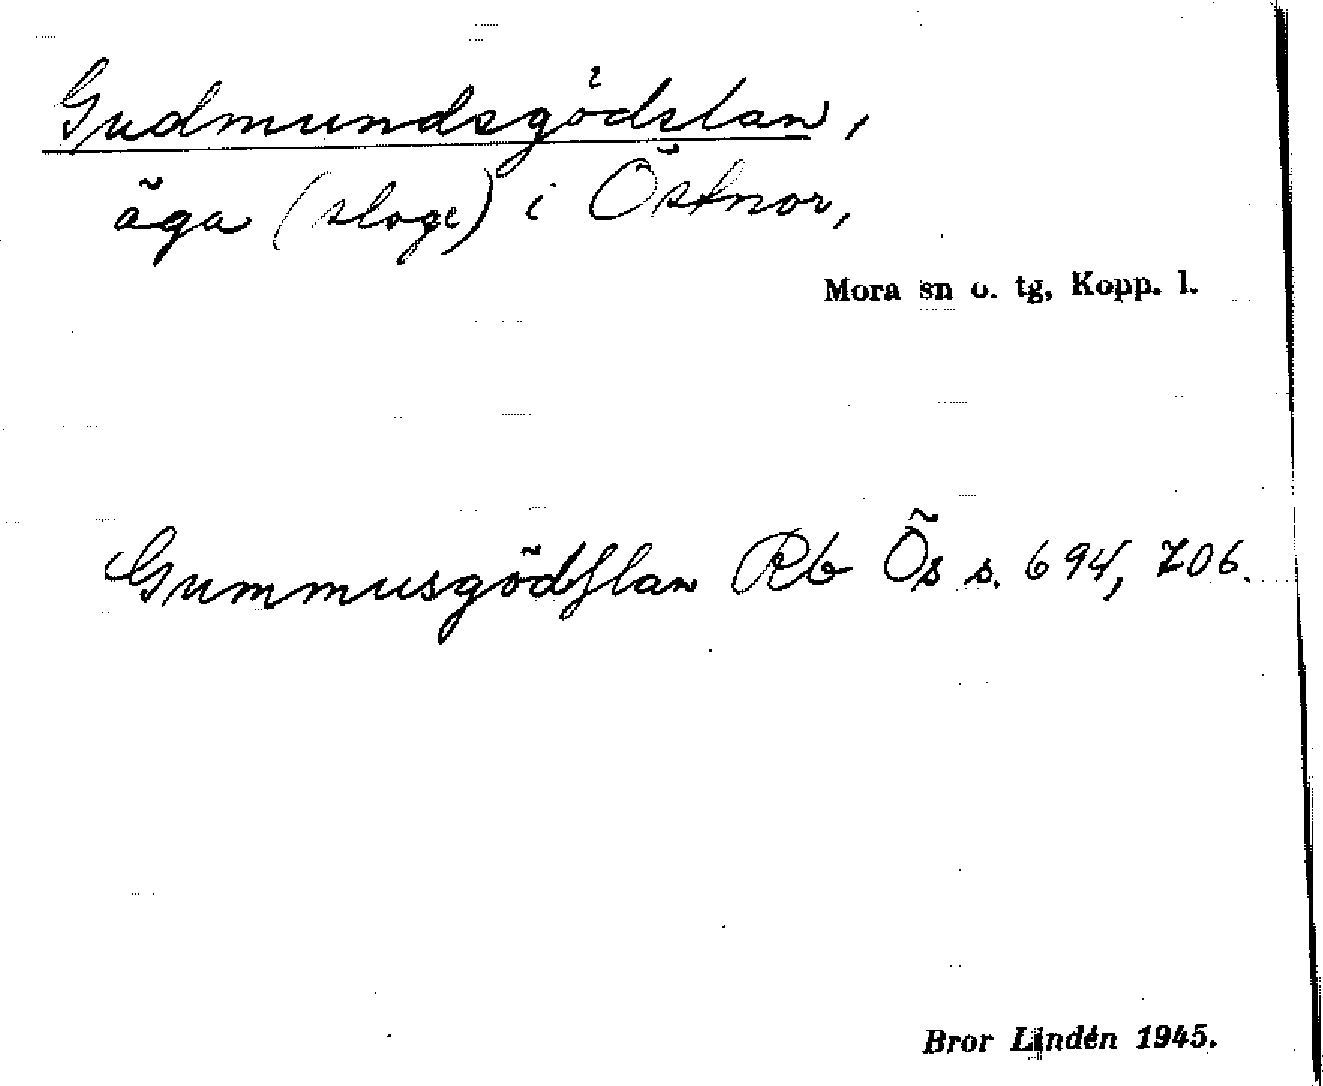 Gudmundsgödslan,
äga (sloge) i Östnor,
Mora sn o. tg, Kopp. l.
Gummusgödslan Rb Ös s. 694, 706.
Bror Lindén 1945.